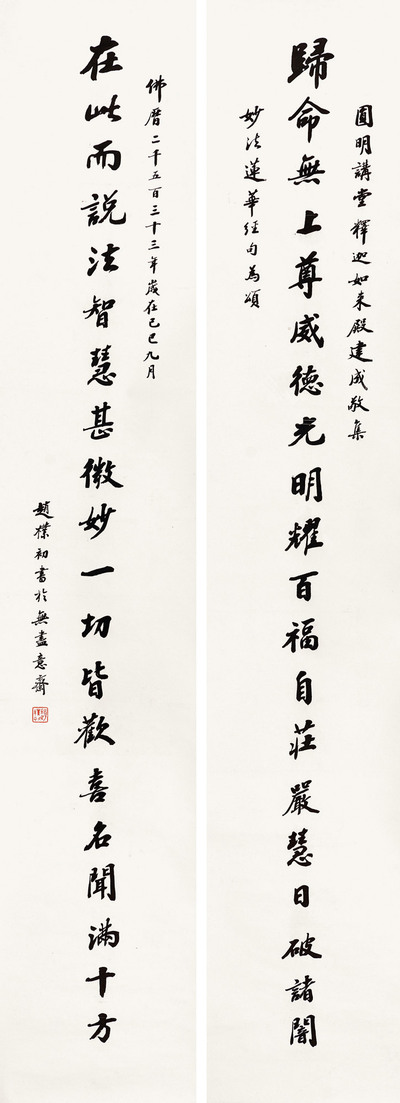 圓明講堂釋迦如来殿建成敬集
歸命無上尊威德光明耀百福自莊嚴慧日破諸闇
妙法蓮華經句為頌
佛曆二千五百三十三年歲在己巳九月
在此而說法智慧甚微妙一切皆歡喜名聞滿十方
趙樸初書於無盡意齋